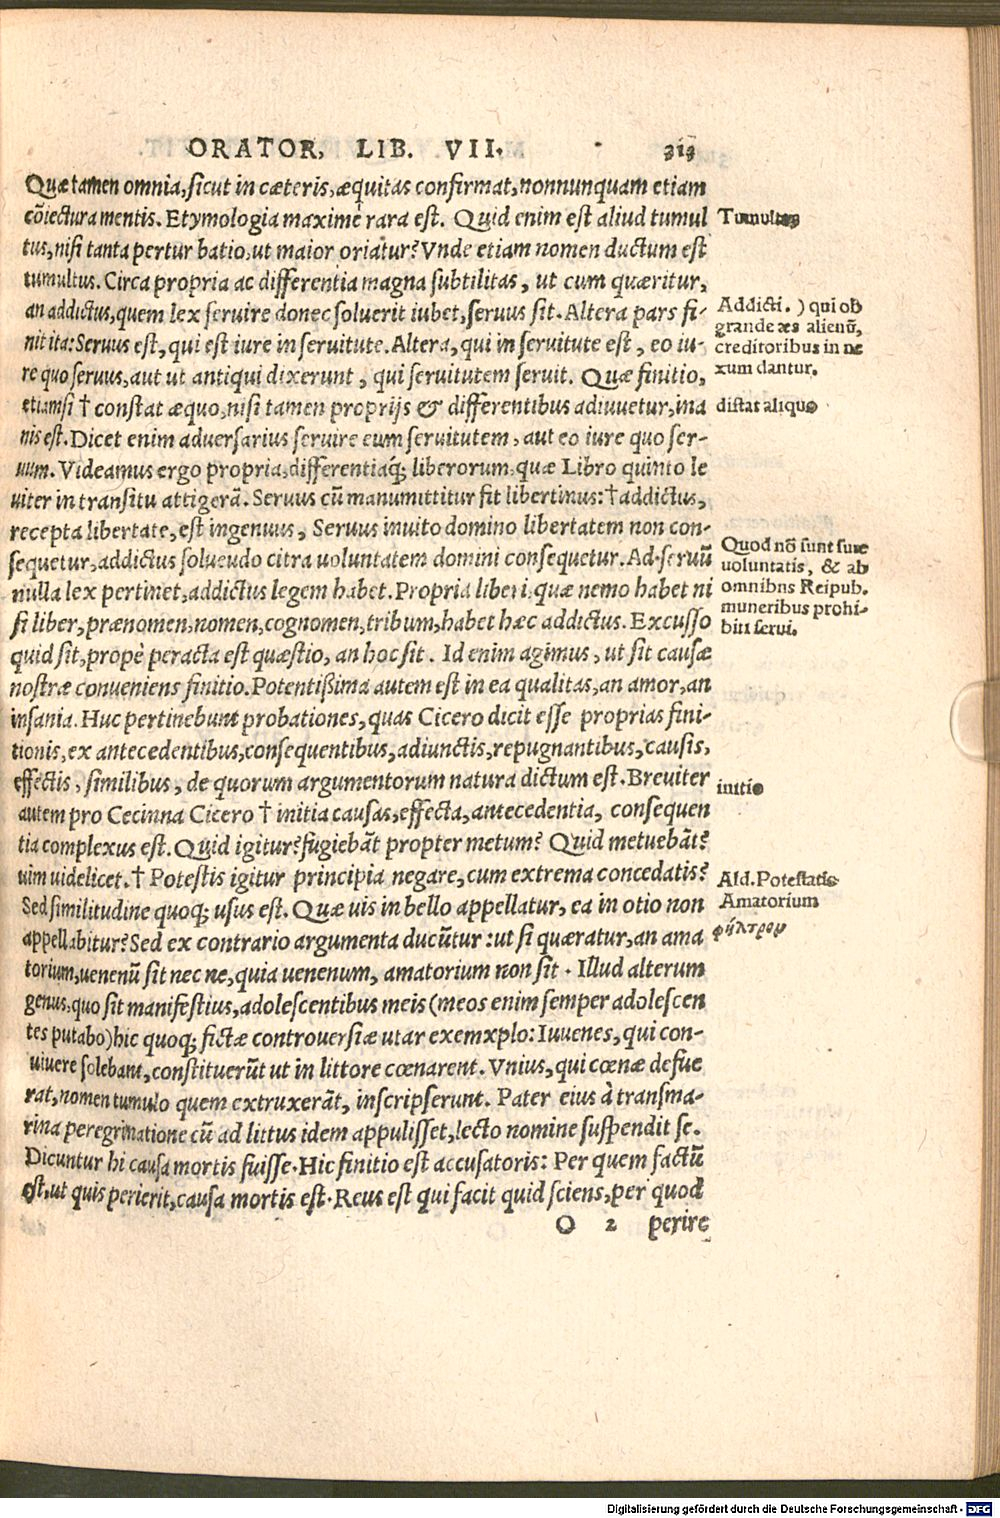 ORATOR, LIB. VII. 313
Quæ tamen omnia, sicut in cæteris, æquitas confirmat, nonnunquam etiam
cōiectura mentis. Etymologia maxime rara est. Quid enim est aliud tumul
tus, nisi tanta perturbatio, ut maior oriatur? Vnde etiam nomen ductum est
tumultus. Circa propria ac differentia magna subtilitas, ut cum quæritur,
an addictus, quem lex servire donec solverit iubet, servus sit. Altera pars fi-
nit ita: Servus est, qui est iure in servitute. Altera, qui in servitute est, eo iu-
re quo servus, aut ut antiqui dixerunt, qui servitutem servit. Quæ finitio,
etiamsi † constat æquo, nisi tamen proprijs & differentibus adiuvetur, ina
nis est. Dicet enim adversarius servire eum servitutem, aut eo iure quo ser-
uum. Videamus ergo propria, differentiaq́; liberorum, quæ Libro quinto le
viter in transitu attigerā. Servus cū manumittitur fit libertinus: † addictus,
recepta libertate, est ingenuus, Servus invito domino libertatem non con-
sequetur, addictus solvendo citra voluntatem domini consequetur. Ad servū
nulla lex pertinet, addictus legem habet. Propria liberi, quæ nemo habet ni
si liber, prænomen, nomen, cognomen, tribum, habet hæc addictus. Excusso
quid sit, propè peracta est quæstio, an hoc sit. Id enim agimus, ut sit causæ
nostræ conveniens finitio. Potentißima autem est in ea qualitas, an amor, an
insania. Huc pertinebunt probationes, quas Cicero dicit esse proprias fini-
tionis, ex antecedentibus, consequentibus, adiunctis, repugnantibus, causis,
effectis, similibus, de quorum argumentorum natura dictum est. Breviter
autem pro Cecinna Cicero † initia causas, effecta, antecedentia, consequen
tia complexus est. Quid igitur? fugiebāt propter metum? Quid metuebāt?
uim uidelicet. † Potestis igitur principia negare, cum extrema concedatis?
Sed similitudine quoq; usus est. Quæ vis in bello appellatur, ea in otio non
appellabitur? Sed ex contrario argumenta ducūtur: ut si quæratur, an ama
torium, uenenū sit nec ne, quia venenum, amatorium non sit. Illud alterum
genus, quo sit manifestius, adolescentibus meis (meos enim semper adolescen
tes putabo) hic quoq; fictæ controversiæ utar exemxplo: Iuvenes, qui con-
uiuere solebant, constituerūt ut in littore cœnarent. Vnius, qui cœnæ defue
rat, nomen tumulo quem extruxerāt, inscripserunt. Pater eius à transma-
rina peregrinatione cū ad littus idem appulisset, lecto nomine suspendit se.
Dicuntur hi causa mortis fuisse. Hic finitio est accusatoris: Per quem factū
est, ut quis perierit, causa mortis est. Reus est qui facit quid sciens, per quod
O 2 perire
Tumultus
Addicti.) qui ob
grande æs alienū,
creditoribus in ne
xum dantur.
distat aliquo
Quod nō sunt suæ
voluntatis, & ab
omnibns Reipub.
muneribus prohi-
biti servi.
initio
Ald. Potestatis
Amatorium
φήλτρον
Digitalisierung gefördert durch die Deutsche Forschungsgemeinschaft - DFG